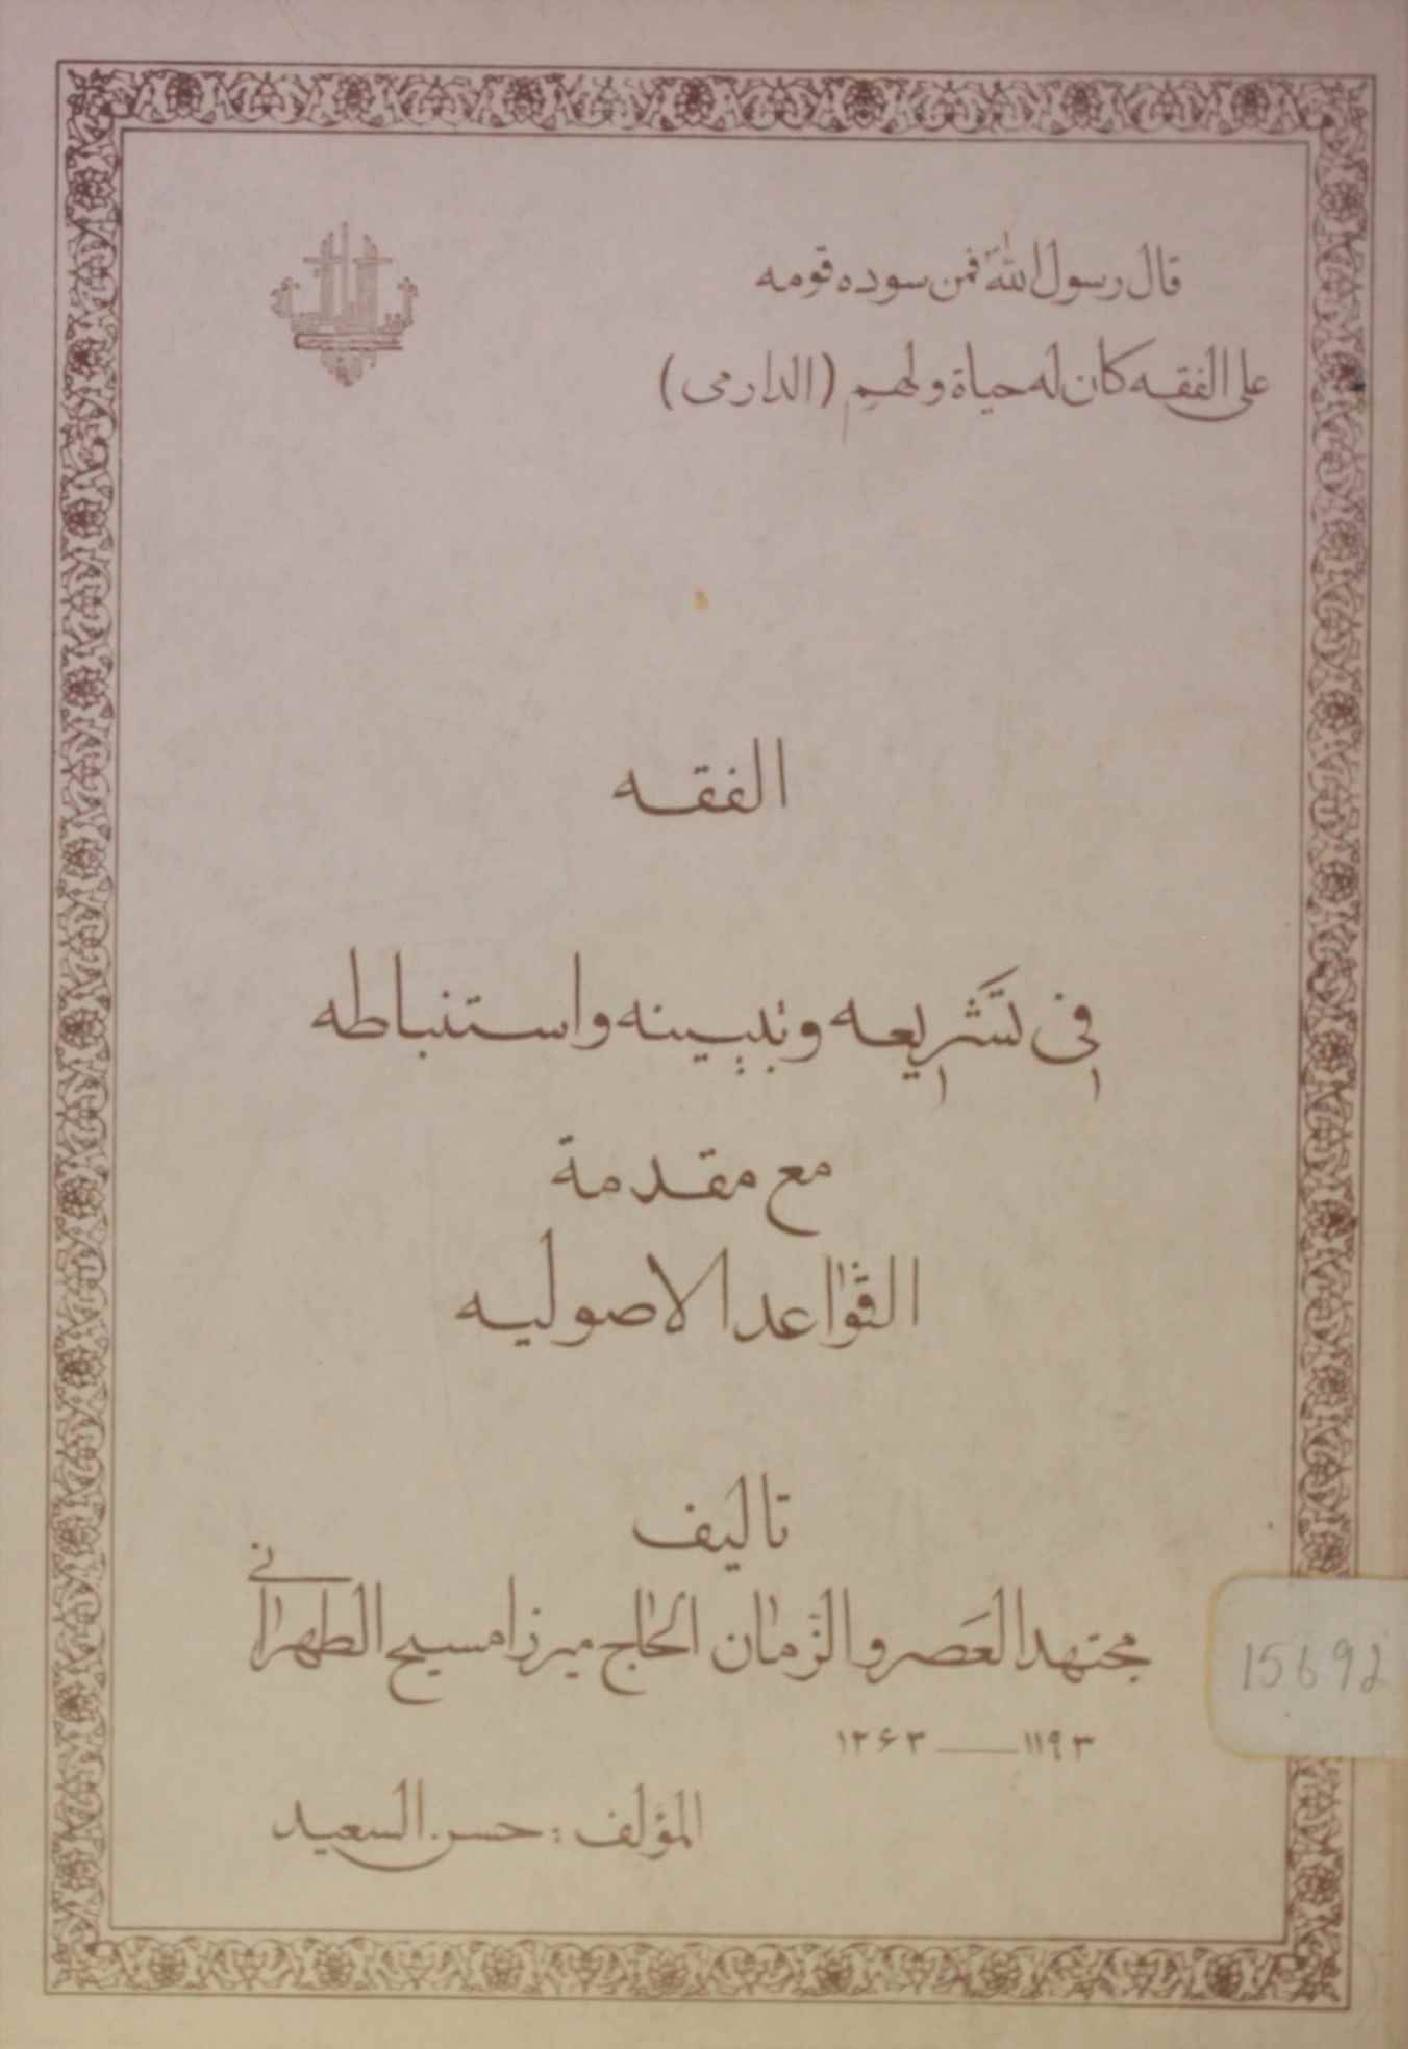 قال رسول اللّٰه فمن سوده قومه
على الفقه كان له حياة ولهم (الدارمى)
الفقه
فى تشريعه وتبيينه واستنباطه
مع مقدمة
القواعد الاصوليه
تاليف
مجتهد العصر والزمان الحاج ميرزا مسيح الطهرانى
۱۱۹۳ — ۱۲۶۳
المؤلف : حسن السعيد
15692